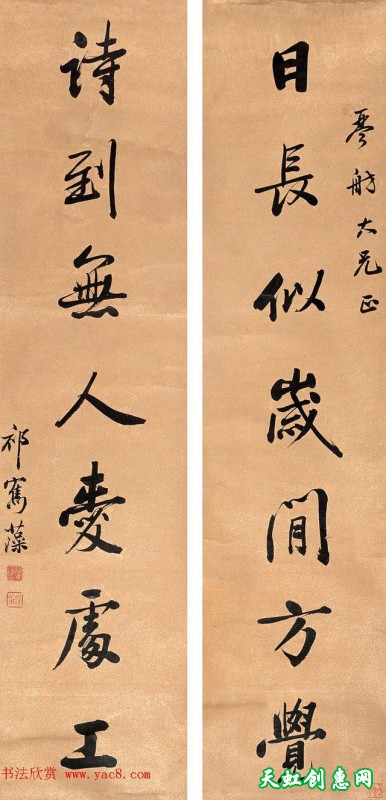 琴舫大兄正
日長似歲閒方覺
詩到無人愛處工
祁寯藻
书法欣赏 www.yac8.com
天虹创惠网